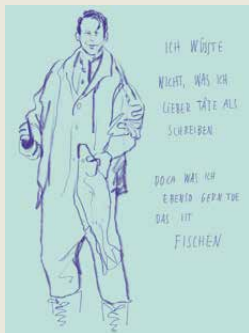 ICH WÜSSTE
NICHT, WAS ICH
LIEBER TÄTE ALS
SCHREIBEN
DOCH WAS ICH
EBENSO GERN TUE
DAS IST
FISCHEN